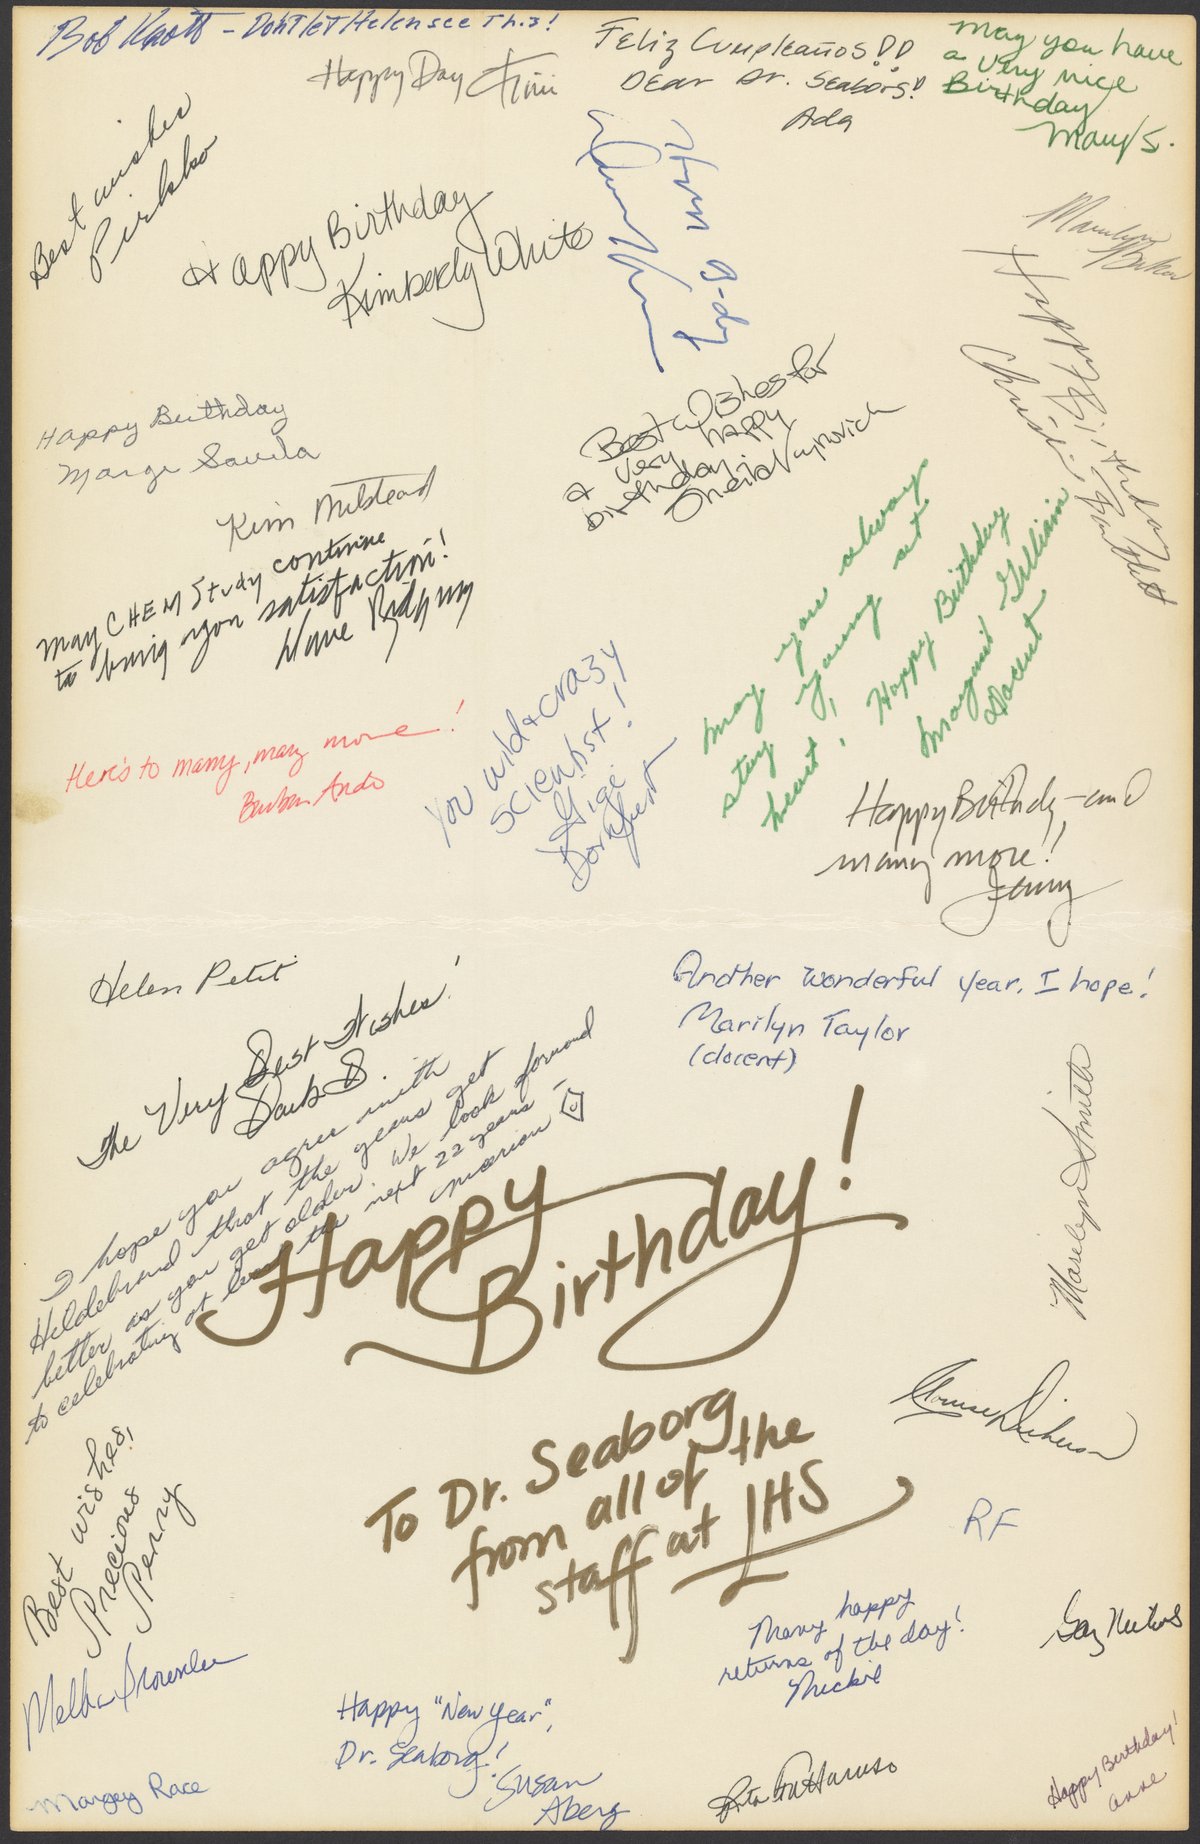 Bob Knott - Don't let Helen see This!
Happy Day Kimi
Feliz Cumpleaños!!
Dear Dr. Seaborg!
Ada
May you have
a very nice
Birthday
Mary S.
Best wishes
Pirkko
Happy Birthday
Kimberly White
B-day
Marilyn
Happy Birthday
Happy Birthday
Marge
Best wishes for
a very happy
birthday.
Kim Milstead
May CHEM Study continue
to bring you satisfaction!
May you always
stay young at
heart!
Happy Birthday
Margaret Gilliam
Docent
Here's to many, many more!
Ando
You wild & crazy
scientist!
Gigi
Dornfest
Happy Birthday - and
many more!!
Jenny
Helen Petit
The Very Best Wishes!
Another wonderful year, I hope!
Marilyn Taylor
(docent)
I hope you agree with
Hildebrand that the years get
better as you get older. We look forward
to celebrating at least the next 22 years
Marion
Marilyn Smith
Happy
Birthday!
To Dr. Seaborg
from all of the
staff at LHS
Dickerson
RF
Best wishes,
Precious
Perry
Many happy
returns of the day!
Mickie
Melba
Happy "New Year",
Dr. Seaborg!
Susan
Aberg
Margey Race
Happy Birthday!
Anne